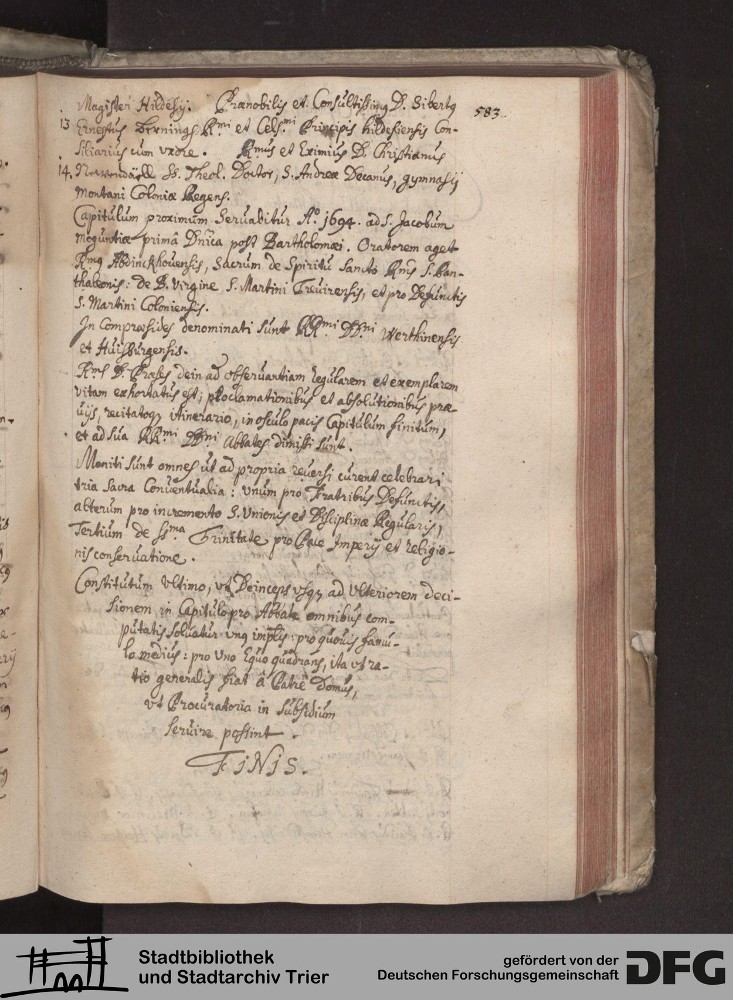 Magistri Hildesij. Prænobilis et Consultissimus D. Siberty 583.
13 Ernestus Bernings Rmi et Celsmi Principis Hildesiensis Con-
siliarius cum uxore. Rmus et Eximius D. Christianus
14. SS. Theol. Doctor, S. Andreæ Decanus, gymnasij
Montani Coloniæ Regens.
Capitulum proximum servabitur Ao. 1694. ad S. Jacobum
Moguntiæ primâ Dnica post Bartholomæi. Oratorem aget
Rmus Abdinckhovensis, Sacrum de Spiritu Sancto Rmus S. Pan-
thaleonis: de B. Virgine S. Martini Trevirensis, et pro Defunctis
S. Martini Coloniensis.
In Compræsides denominati sunt RRmi DDni Werthinensis
et Huisburgensis.
Rmus D. Præses dein ad observantiam regularem et exemplarem
vitam exhortatus est; proclamationibus et absolutionibus præ-
uijs, recitatoq itinerario, in osculo pacis Capitulum finitum,
et ad sua RRmi DDni Abbates dimissi sunt.
Moniti sunt omnes ut ad propria reuersi curent celebrari
tria sacra Conuentualia: unum pro Fratribus Defunctis,
alterum pro incremento S. Unionis et Disciplinæ Regularis,
Tertium de SSma Trinitate pro Pace Imperij et religio-
nis conseruatione.
Constitutum Vltimo, ut Deinceps usq ad Vlteriorem deci-
sionem in Capitulo pro Abbate omnibus com-
putatis soluatur unq implis: pro quouis famu-
lo medius: pro Vno Equo quadrans, ita ut ra-
tio generalis fiat â Patre Domus,
ut Procuratoria in subsidium
seruire possint.
FINIS.
Stadtbibliothek
und Stadtarchiv Trier
gefördert von der
Deutschen Forschungsgemeinschaft
DFG